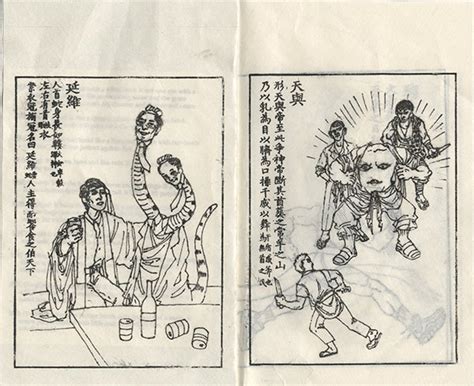 天與
形天與帝至此爭神帝斷其首葬之常羊之山
乃以乳為目以臍為口操干戚以舞
延維
人首蛇身長如轅
左右有首衣
冠旃冠名曰延維人主得而饗食之伯天下